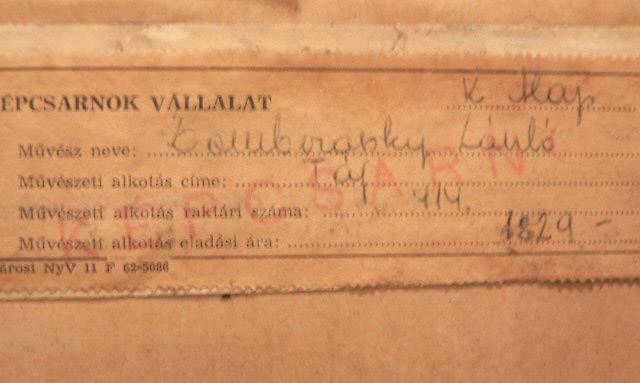 ÉPCSARNOK VÁLLALAT
K. Maj
Művész neve: Zombor László
Művészeti alkotás címe: Táj
Művészeti alkotás raktári száma: 414.
Művészeti alkotás eladási ára: 1829 –
árosi NyV 11 F 62-5086
KÉPCSARN